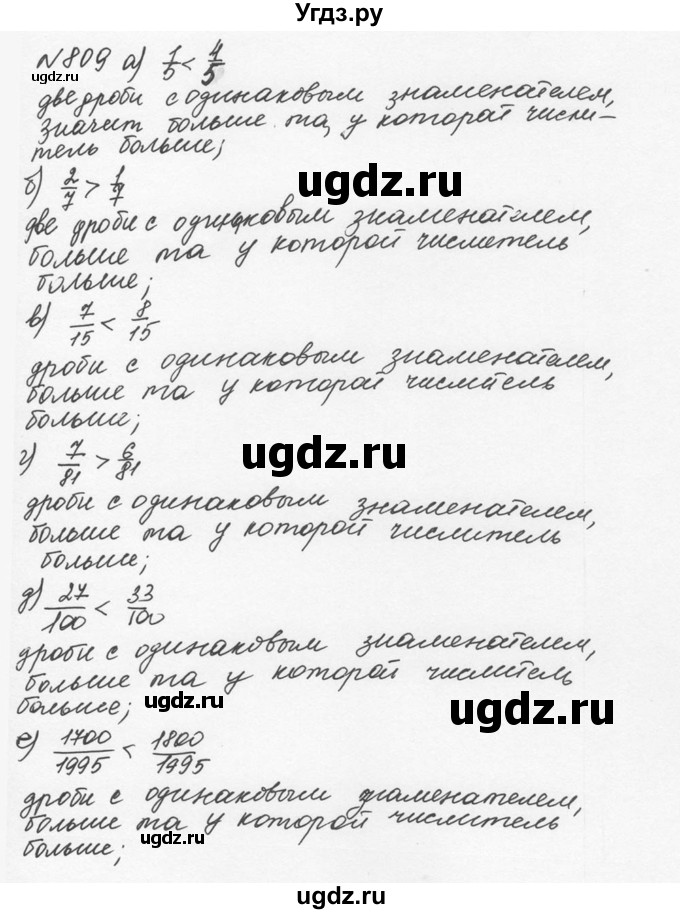 Угдз.ру
№809 а) 1/5 < 4/5
ugdz.ru
две дроби с одинаковым знаменателем,
значит больше та, у которой числи-
тель больше;
ugdz.ru
б) 2/7 > 1/7
две дроби с одинаковым знаменателем,
больше та у которой числитель
больше;
в) 7/15 < 8/15
дроби с одинаковым знаменателем,
больше та у которой числитель
больше;
ugdz.ru
г) 7/81 > 6/81
дроби с одинаковым знаменателем,
больше та у которой числитель
больше;
д) 27/100 < 33/100
дроби с одинаковым знаменателем,
больше та у которой числитель
больше;
ugdz.ru
ugdz.ru
е) 1700/1995 < 1800/1995
дроби с одинаковым знаменателем,
больше та у которой числитель
больше;
ugdz.ru
ugdz.ru